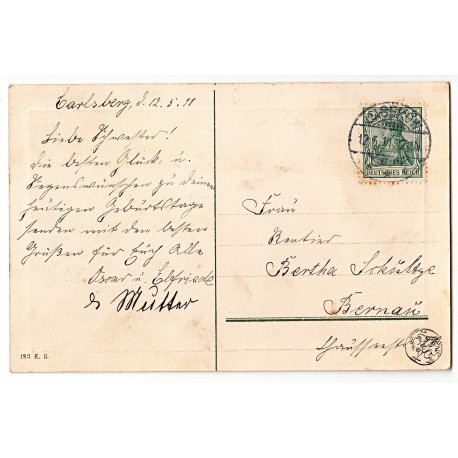 Carlsberg, d. 12.5.11
Liebe Schwester!
Die besten Glück. u.
Segenswünschen zu deinem
heutigen Geburtstage
senden mit den besten
Grüßen für Euch Alle
Oscar u. Elfriede
& Mutter
192 E. S.
DEUTSCHES REICH
Frau
Rentier
Bertha Schultze
Bernau